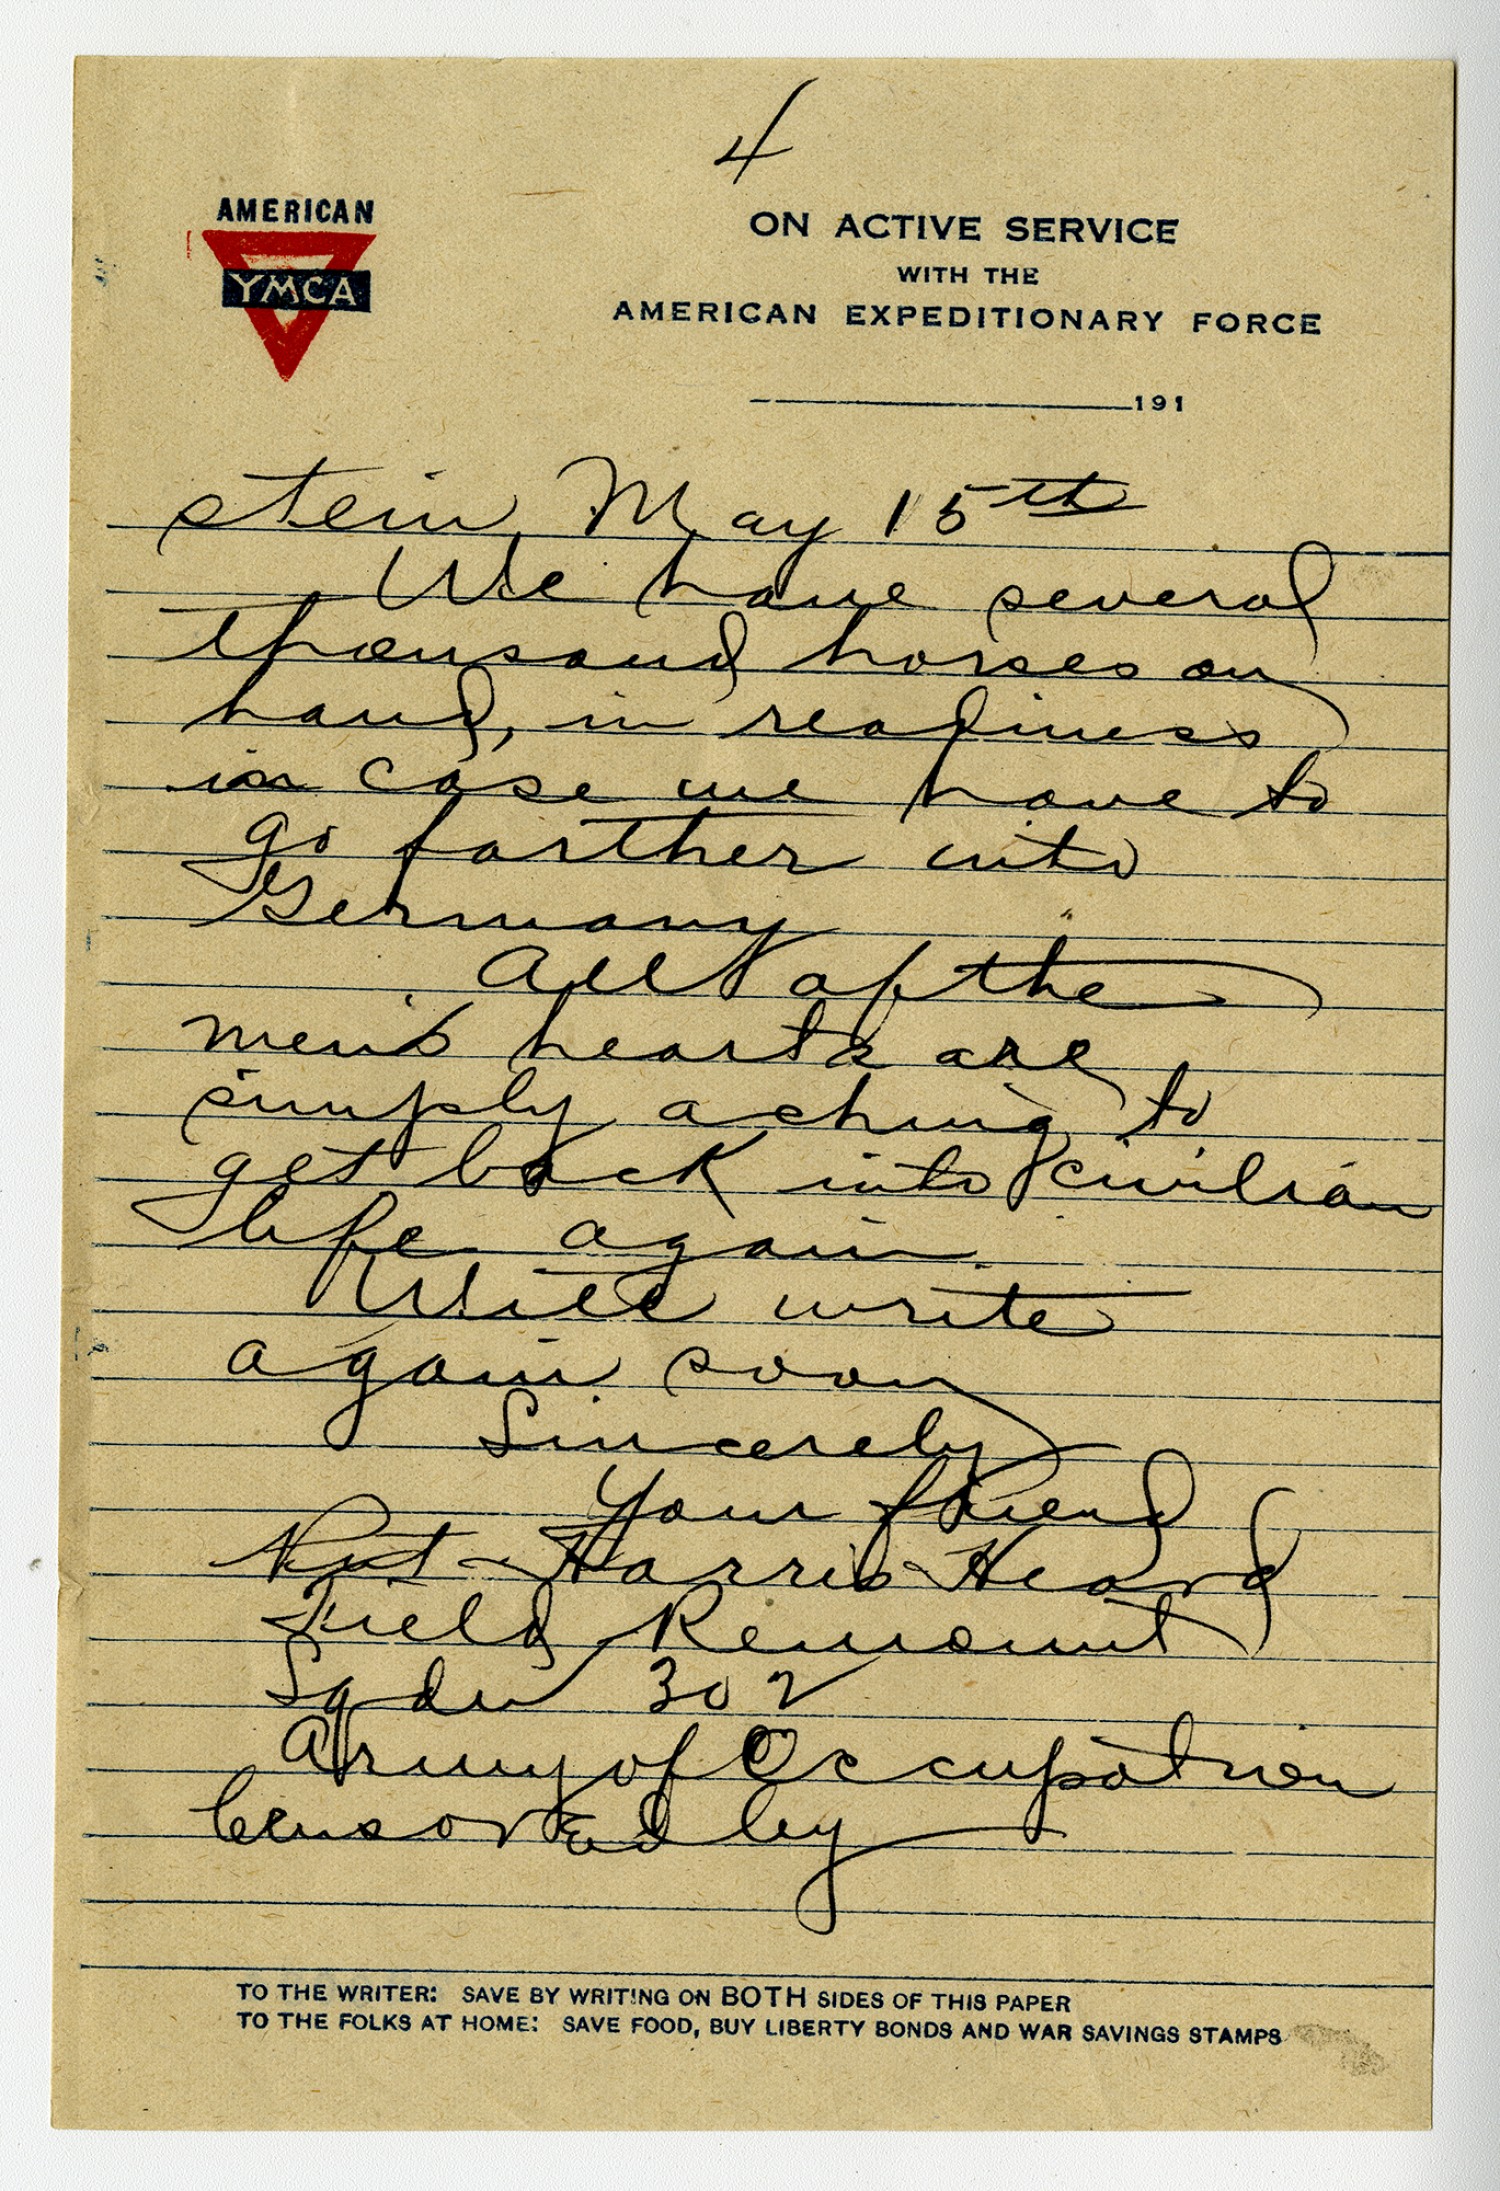 4
AMERICAN
YMCA
ON ACTIVE SERVICE
WITH THE
AMERICAN EXPEDITIONARY FORCE
191
stein, May 15th
We have several
thousand horses on
hand, in readiness
in case we have to
go farther into
Germany
All of the
men's hearts are
simply aching to
get back into civilian
life again.
Will write
again soon
Sincerely
Your friend
Harris Heard
Field Remount
Sqdn 302
Army of Occupation
Censored by
TO THE WRITER: SAVE BY WRITING ON BOTH SIDES OF THIS PAPER
TO THE FOLKS AT HOME: SAVE FOOD, BUY LIBERTY BONDS AND WAR SAVINGS STAMPS